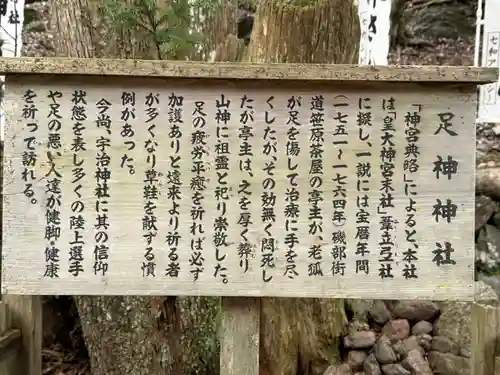 足神神社
「神宮典略」によると、本社
は「皇大神宮末社」葦立弖社
に擬し、一説には宝暦年間
(一七五一〜一七六四年)磯部街
道笹原茶屋の亭主が、老狐
が足を傷して治療に手を尽
くしたが、その効無く悶死し
たが亭主は、之を厚く葬り
山神に祖霊と祀り崇敬した。
足の疲労平癒を祈れば必ず
加護ありと遠来より祈る者
が多くなり草鞋を献する慣
例があった。
今尚、宇治神社に其の信仰
状態を表し多くの陸上選手
や足の悪い人達が健脚・健康
を祈って訪れる。